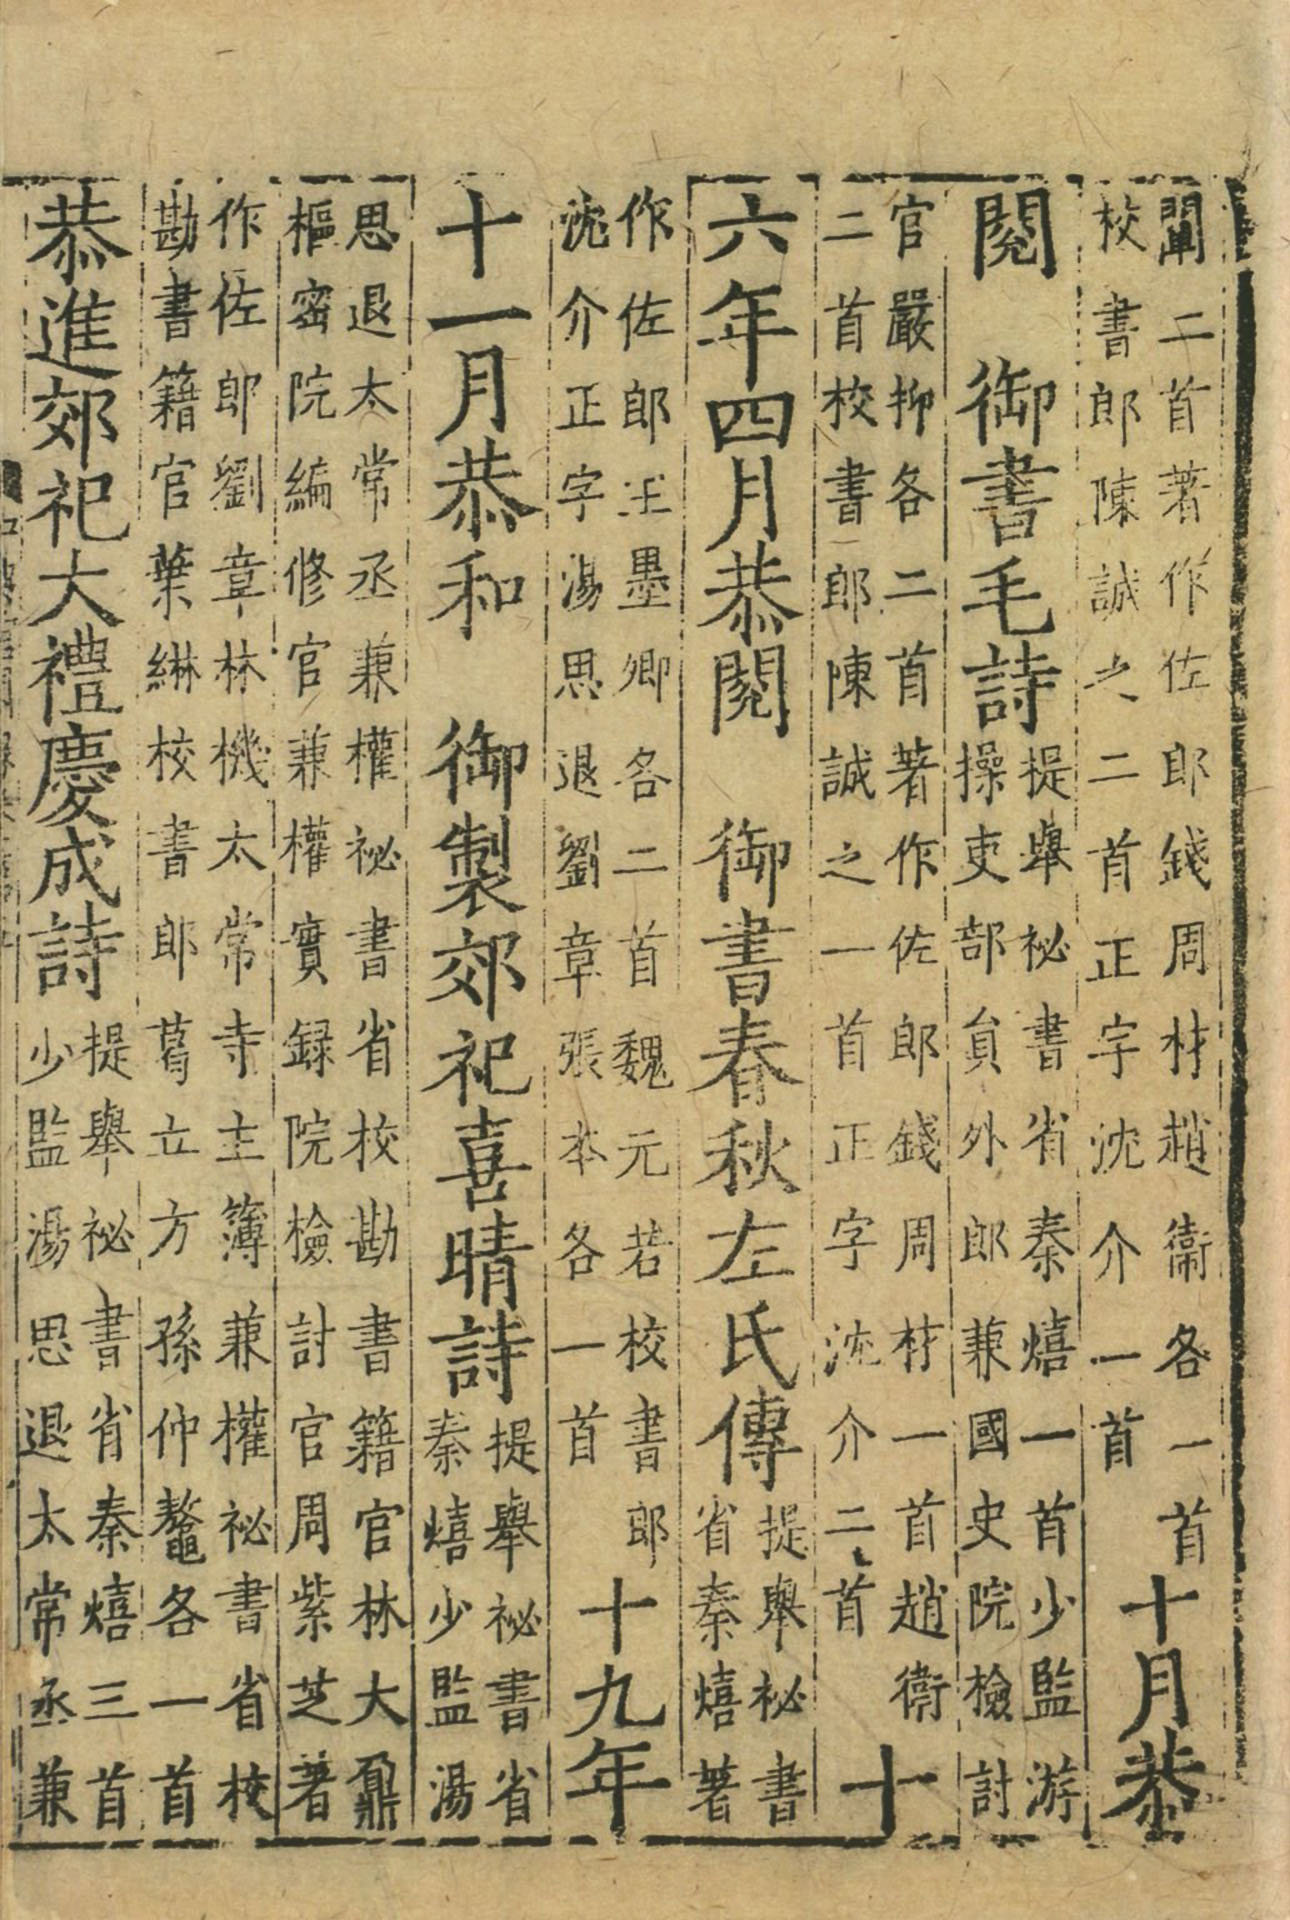 闡二首著作佐郎錢周材趙衞各一首
校書郎陳誠之二首正字沈介一首
十月恭
閱　御書毛詩
提舉祕書省秦熺一首少監游
操吏部員外郎兼國史院檢討
官嚴抑各二首著作佐郎錢周材一首趙衞
二首校書郎陳誠之一首正字沈介二首
十
六年四月恭閱　御書春秋左氏傳
提舉祕書
省秦熺著
作佐郎王墨卿各二首魏元若校書郎
沈介正字湯思退劉章張本各一首
十九年
十一月恭和　御製郊祀喜晴詩
提舉祕書省
秦熺少監湯
思退太常丞兼權祕書省校勘書籍官林大鼐
樞密院編修官兼權實録院檢討官周紫芝著
作佐郎劉章林機太常寺主簿兼權祕書省校
勘書籍官葉綝校書郎葛立方孫仲鼇各一首
恭進郊祀大禮慶成詩
提舉祕書省秦熺三首
少監湯思退太常丞兼